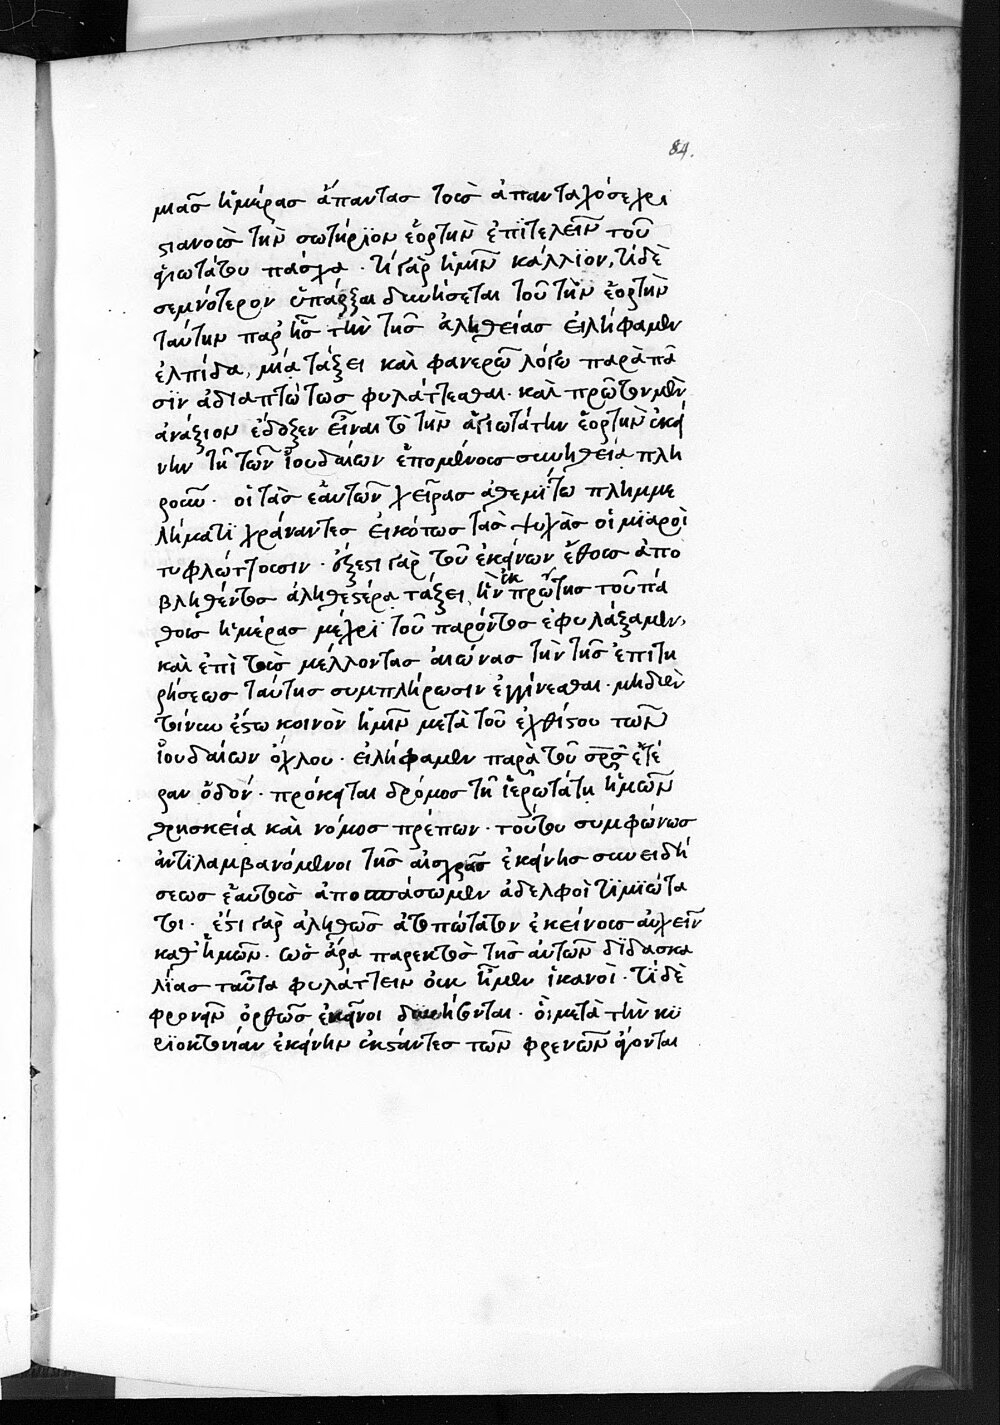 84.
μιᾶσ ἡμέρασ ἅπαντασ τοὺσ ἁπανταχόσε χρι
στιανοὺσ τὴν σωτήριον ἑορτὴν ἐπιτελεῖν τοῦ
ἁγιωτάτου πάσχα · τί γὰρ ἡμῖν κάλλϊον, τί δὲ
σεμνότερον ὑπάρξαι δυνήσεται τοῦ τὴν ἑορτὴν
ταύτην παρ ἧσ τὴν τῆσ ἀληθείασ εἰλήφαμεν
ἐλπίδα, μιᾶ τάξει καὶ φανερῶ λόγω παρὰ πᾶ
σϊν ἀδιαπτώτωσ φυλάττεσθαι · καὶ πρῶτον μὲν
ἀνάξιον ἔδοξεν εἶναι τὸ τὴν ἁγιωτάτην ἑορτὴν ἐκεί
νην τῆ τῶν ἰουδαίων ἑπομένουσ συνηθεία πλη
ροῦν · οἱ τὰσ ἑαυτῶν χεῖρασ ἀθεμΐτω πλημμε
λήματϊ χράναντεσ εἰκότωσ τὰσ ψυχὰσ οἱ μϊαροὶ
τυφλώττουσιν · ἔξεστι γὰρ τοῦ ἐκείνων ἔθουσ ἀπο
βληθέντοσ ἀληθεστέρα τάξει, ἣν ἐκ πρώτησ τοῦ πά
θουσ ἡμέρασ μέχρϊ τοῦ παρόντοσ ἐφυλάξαμεν,
καὶ ἐπὶ τοὺσ μέλλοντασ αἰώνασ τὴν τῆσ ἐπιτη
ρήσεωσ ταύτησ συμπλήρωσιν ἐγγίνεσθαι · μηδὲν
τοίνυν ἔστω κοινὸν ἡμῖν μετὰ τοῦ ἐχθίστου τῶν
ἰουδαίων ὄχλου · εἰλήφαμεν παρὰ τοῦ σρσ ἑτέ
ραν ὁδόν · πρόκειται δρόμοσ τῆ ἱερωτάτη ἡμῶν
θρησκεία καὶ νόμοσ πρέπων · τούτου συμφώνωσ
ἀντϊλαμβανόμενοι τῆσ αἰσχρᾶσ ἐκείνησ συνειδή
σεωσ ἑαυτοὺσ ἀποσπάσωμεν ἀδελφοὶ τϊμϊώτα
τοι · ἔστι γὰρ ἀληθῶσ ἀτοπώτατον ἐκείνουσ αὐχεῖν
καθ ἡμῶν · ὡσ ἄρα παρεκτὸσ τῆσ αὐτῶν δϊδασκα
λίασ ταῦτα φυλάττειν οὐκ ἦμεν ἱκανοί · τί δὲ
φρονεῖν ὀρθῶσ ἐκεῖνοι δυνήσονται · οἳ μετὰ τὴν κυ
ρϊοκτονίαν ἐκείνην ἐκστάντεσ τῶν φρενῶν ἄγονται